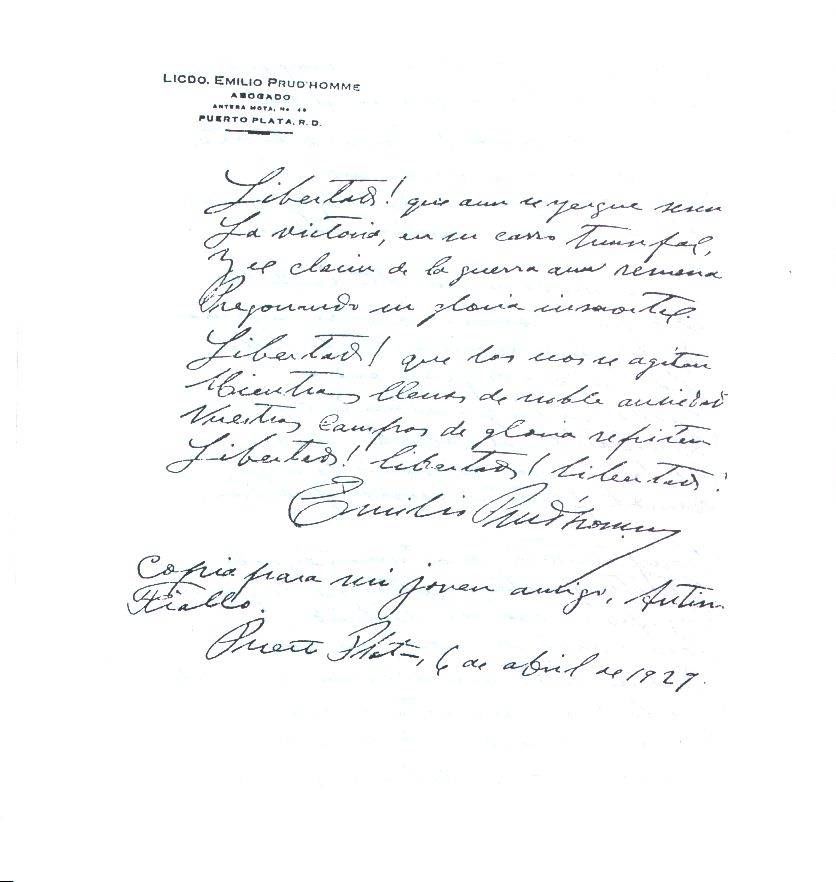 LICDO. EMILIO PRUD'HOMME
ABOGADO
ANTERA MOTA, No. 48
PUERTO PLATA, R. D.
Libertad! que aun se yergue serena
La victoria, en su carro triunfal,
Y el clarin de la guerra aun resuena
Pregonando su gloria inmortal.
Libertad! que los ecos se agitan
Mientras llenos de noble ansiedad
Nuestros campos de gloria repiten
Libertad! libertad! libertad!
Emilio Prud'homme
Copia para mi joven amigo, Antin
Fiallo.
Puerto Plata, 6 de abril de 1929.